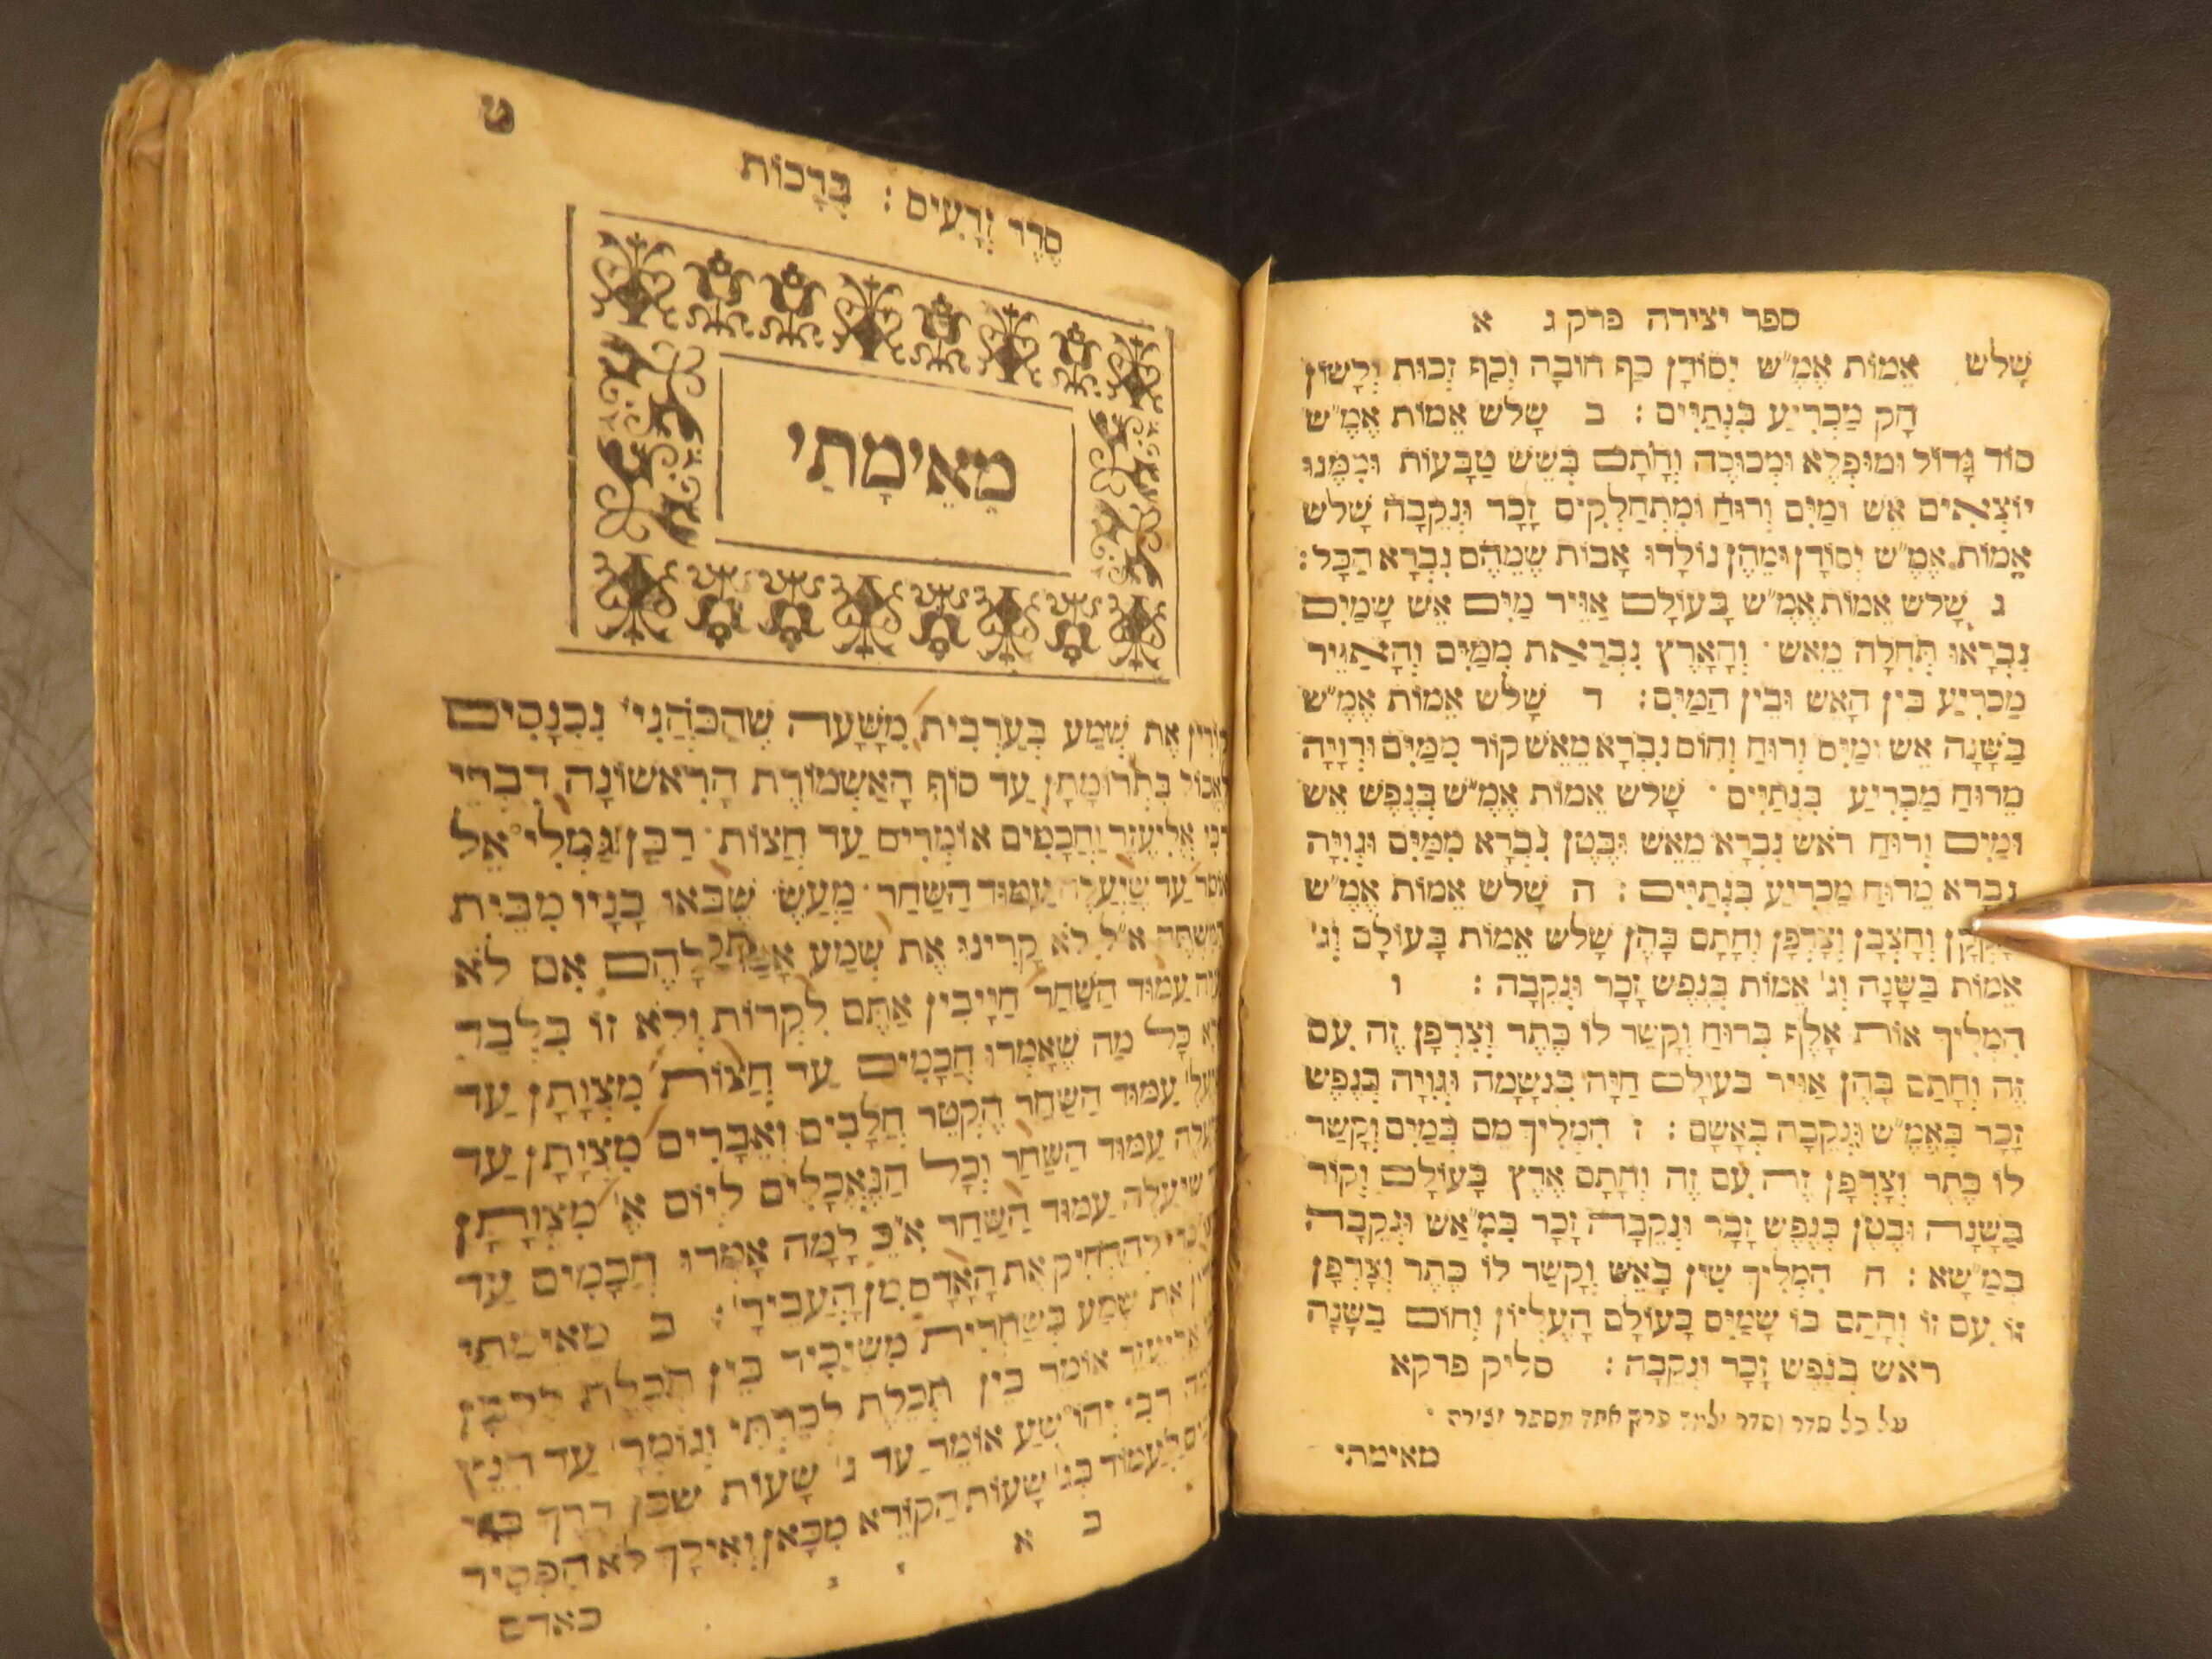 ספר יצירה פרק ג א
שָׁלֹשׁ אִמּוֹת אֶמֶ״שׁ יְסוֹדָן כַּף חוֹבָה וְכַף זְכוּת וְלָשׁוֹן
חֹק מַכְרִיעַ בִּנְתַיִים : ב שָׁלֹשׁ אִמּוֹת אֶמֶ״שׁ
סוֹד גָּדוֹל וּמוּפְלָא וּמְכוּסֶה וְחָתַם בְּשֵׁשׁ טַבָּעוֹת וּמִמֶּנּוּ
יוֹצְאִים אֵשׁ וּמַיִם וְרוּחַ וּמִתְחַלְּקִים זָכָר וּנְקֵבָה שָׁלֹשׁ
אִמּוֹת אֶמֶ״שׁ יְסוֹדָן וּמֵהֶן נוֹלָדוּ אָבוֹת שֶׁמֵּהֶם נִבְרָא הַכֹּל :
ג שָׁלֹשׁ אִמּוֹת אֶמֶ״שׁ בָּעוֹלָם אַוֵּיר מַיִם אֵשׁ שָׁמַיִם
נִבְרָאוּ תְּחִלָּה מֵאֵשׁ · וְהָאָרֶץ נִבְרֵאת מִמַּיִם וְהָאַוֵּיר
מַכְרִיעַ בֵּין הָאֵשׁ וּבֵין הַמַּיִם : ד שָׁלֹשׁ אִמּוֹת אֶמֶ״שׁ
בַּשָּׁנָה אֵשׁ וּמַיִם וְרוּחַ וְחוֹם נִבְרָא מֵאֵשׁ קוֹר מִמַּיִם וּרְוָיָה
מֵרוּחַ מַכְרִיעַ בִּנְתַיִים · שָׁלֹשׁ אִמּוֹת אֶמֶ״שׁ בְּנֶפֶשׁ אֵשׁ
וּמַיִם וְרוּחַ רֹאשׁ נִבְרָא מֵאֵשׁ וּבֶטֶן נִבְרָא מִמַּיִם וּגְוִיָּה
נִבְרָא מֵרוּחַ מַכְרִיעַ בִּנְתַיִים : ה שָׁלֹשׁ אִמּוֹת אֶמֶ״שׁ
וְחָצְבָן וְצָרְפָן וְחָתַם בָּהֶן שָׁלֹשׁ אִמּוֹת בָּעוֹלָם וְג'
אִמּוֹת בַּשָּׁנָה וְג' אִמּוֹת בְּנֶפֶשׁ זָכָר וּנְקֵבָה : ו
הִמְלִיךְ אוֹת אָלֶף בְּרוּחַ וְקָשַׁר לוֹ כֶּתֶר וְצָרְפָן זֶה עִם
זֶה וְחָתַם בָּהֶן אַוֵּיר בָּעוֹלָם חַיָּה בִּנְשָׁמָה וּגְוִיָּה בְּנֶפֶשׁ
זָכָר בְּאֶמֶ״שׁ וּנְקֵבָה בְּאָשָׁם : ז הִמְלִיךְ מֵם בְּמַיִם וְקָשַׁר
לוֹ כֶּתֶר וְצָרְפָן זֶה עִם זֶה וְחָתַם אֶרֶץ בָּעוֹלָם וְקוֹר
בַּשָּׁנָה וּבֶטֶן בְּנֶפֶשׁ זָכָר וּנְקֵבָה זָכָר בְּמֶ״אשׁ וּנְקֵבָה
בְּמַ״שָׁא : ח הִמְלִיךְ שִׁין בָּאֵשׁ וְקָשַׁר לוֹ כֶּתֶר וְצָרְפָן
זוֹ עִם זוֹ וְחָתַם בּוֹ שָׁמַיִם בָּעוֹלָם הָעֶלְיוֹן וְחוֹם בַּשָּׁנָה
רֹאשׁ בְּנֶפֶשׁ זָכָר וּנְקֵבָה : סליק פרקא
על כל סדר וסדר ילמד פרק אחד מספר יצירה ·
מאימתי
ט
סֵדֶר זְרָעִים : בְּרָכוֹת
מֵאֵימָתַי
קוֹרִין אֶת שְׁמַע בְּעַרְבִית מִשָּׁעָה שֶׁהַכֹּהֲנִי' נִכְנָסִים
לֶאֱכוֹל בִּתְרוּמָתָן עַד סוֹף הָאַשְׁמוֹרֶת הָרִאשׁוֹנָה דִּבְרֵי
אֱלִיעֶזֶר וַחֲכָמִים אוֹמְרִים עַד חֲצוֹת · רַבָּן גַּמְלִיאֵל
אוֹמֵר עַד שֶׁיַּעֲלֶה עַמּוּד הַשַּׁחַר · מַעֲשֶׂ' שֶׁבָּאוּ בָּנָיו מִבֵּית
א״ל לֹא קָרִינוּ אֶת שְׁמַע אָמַר לָהֶם אִם לֹא
עַמּוּד הַשַּׁחַר חַיָּיבִין אַתֶּם לִקְרוֹת וְלֹא זוֹ בִּלְבַד
כָּל מַה שֶּׁאָמְרוּ חֲכָמִים עַד חֲצוֹת מִצְוָתָן עַד
עַמּוּד הַשַּׁחַר הֶקְטֵר חֲלָבִים וְאֵבָרִים מִצְוָתָן עַד
עַמּוּד הַשַּׁחַר וְכָל הַנֶּאֱכָלִים לְיוֹם א' מִצְוָתָן
שֶׁיַּעֲלֶה עַמּוּד הַשַּׁחַר א״כ לָמָּה אָמְרוּ חֲכָמִים עַד
לְהַרְחִיק אֶת הָאָדָם מִן הָעֲבֵירָ' : ב מֵאֵימָתַי
אֶת שְׁמַע בְּשַׁחֲרִית מִשֶּׁיַּכִּיר בֵּין תְּכֵלֶת לְלָבָן
אֱלִיעֶזֶר אוֹמֵר בֵּין תְּכֵלֶת לְכַרְתִּי וְגוֹמְרָ' עַד הָנֵץ
רַבִּי יְהוֹשֻׁעַ אוֹמֵר עַד ג' שָׁעוֹת שֶׁכֵּן דֶּרֶךְ בְּנֵי
לַעֲמוֹד בְּג' שָׁעוֹת הַקּוֹרֵא מִכָּאן וְאֵילָךְ לֹא הִפְסִיד
ב א
כאדם